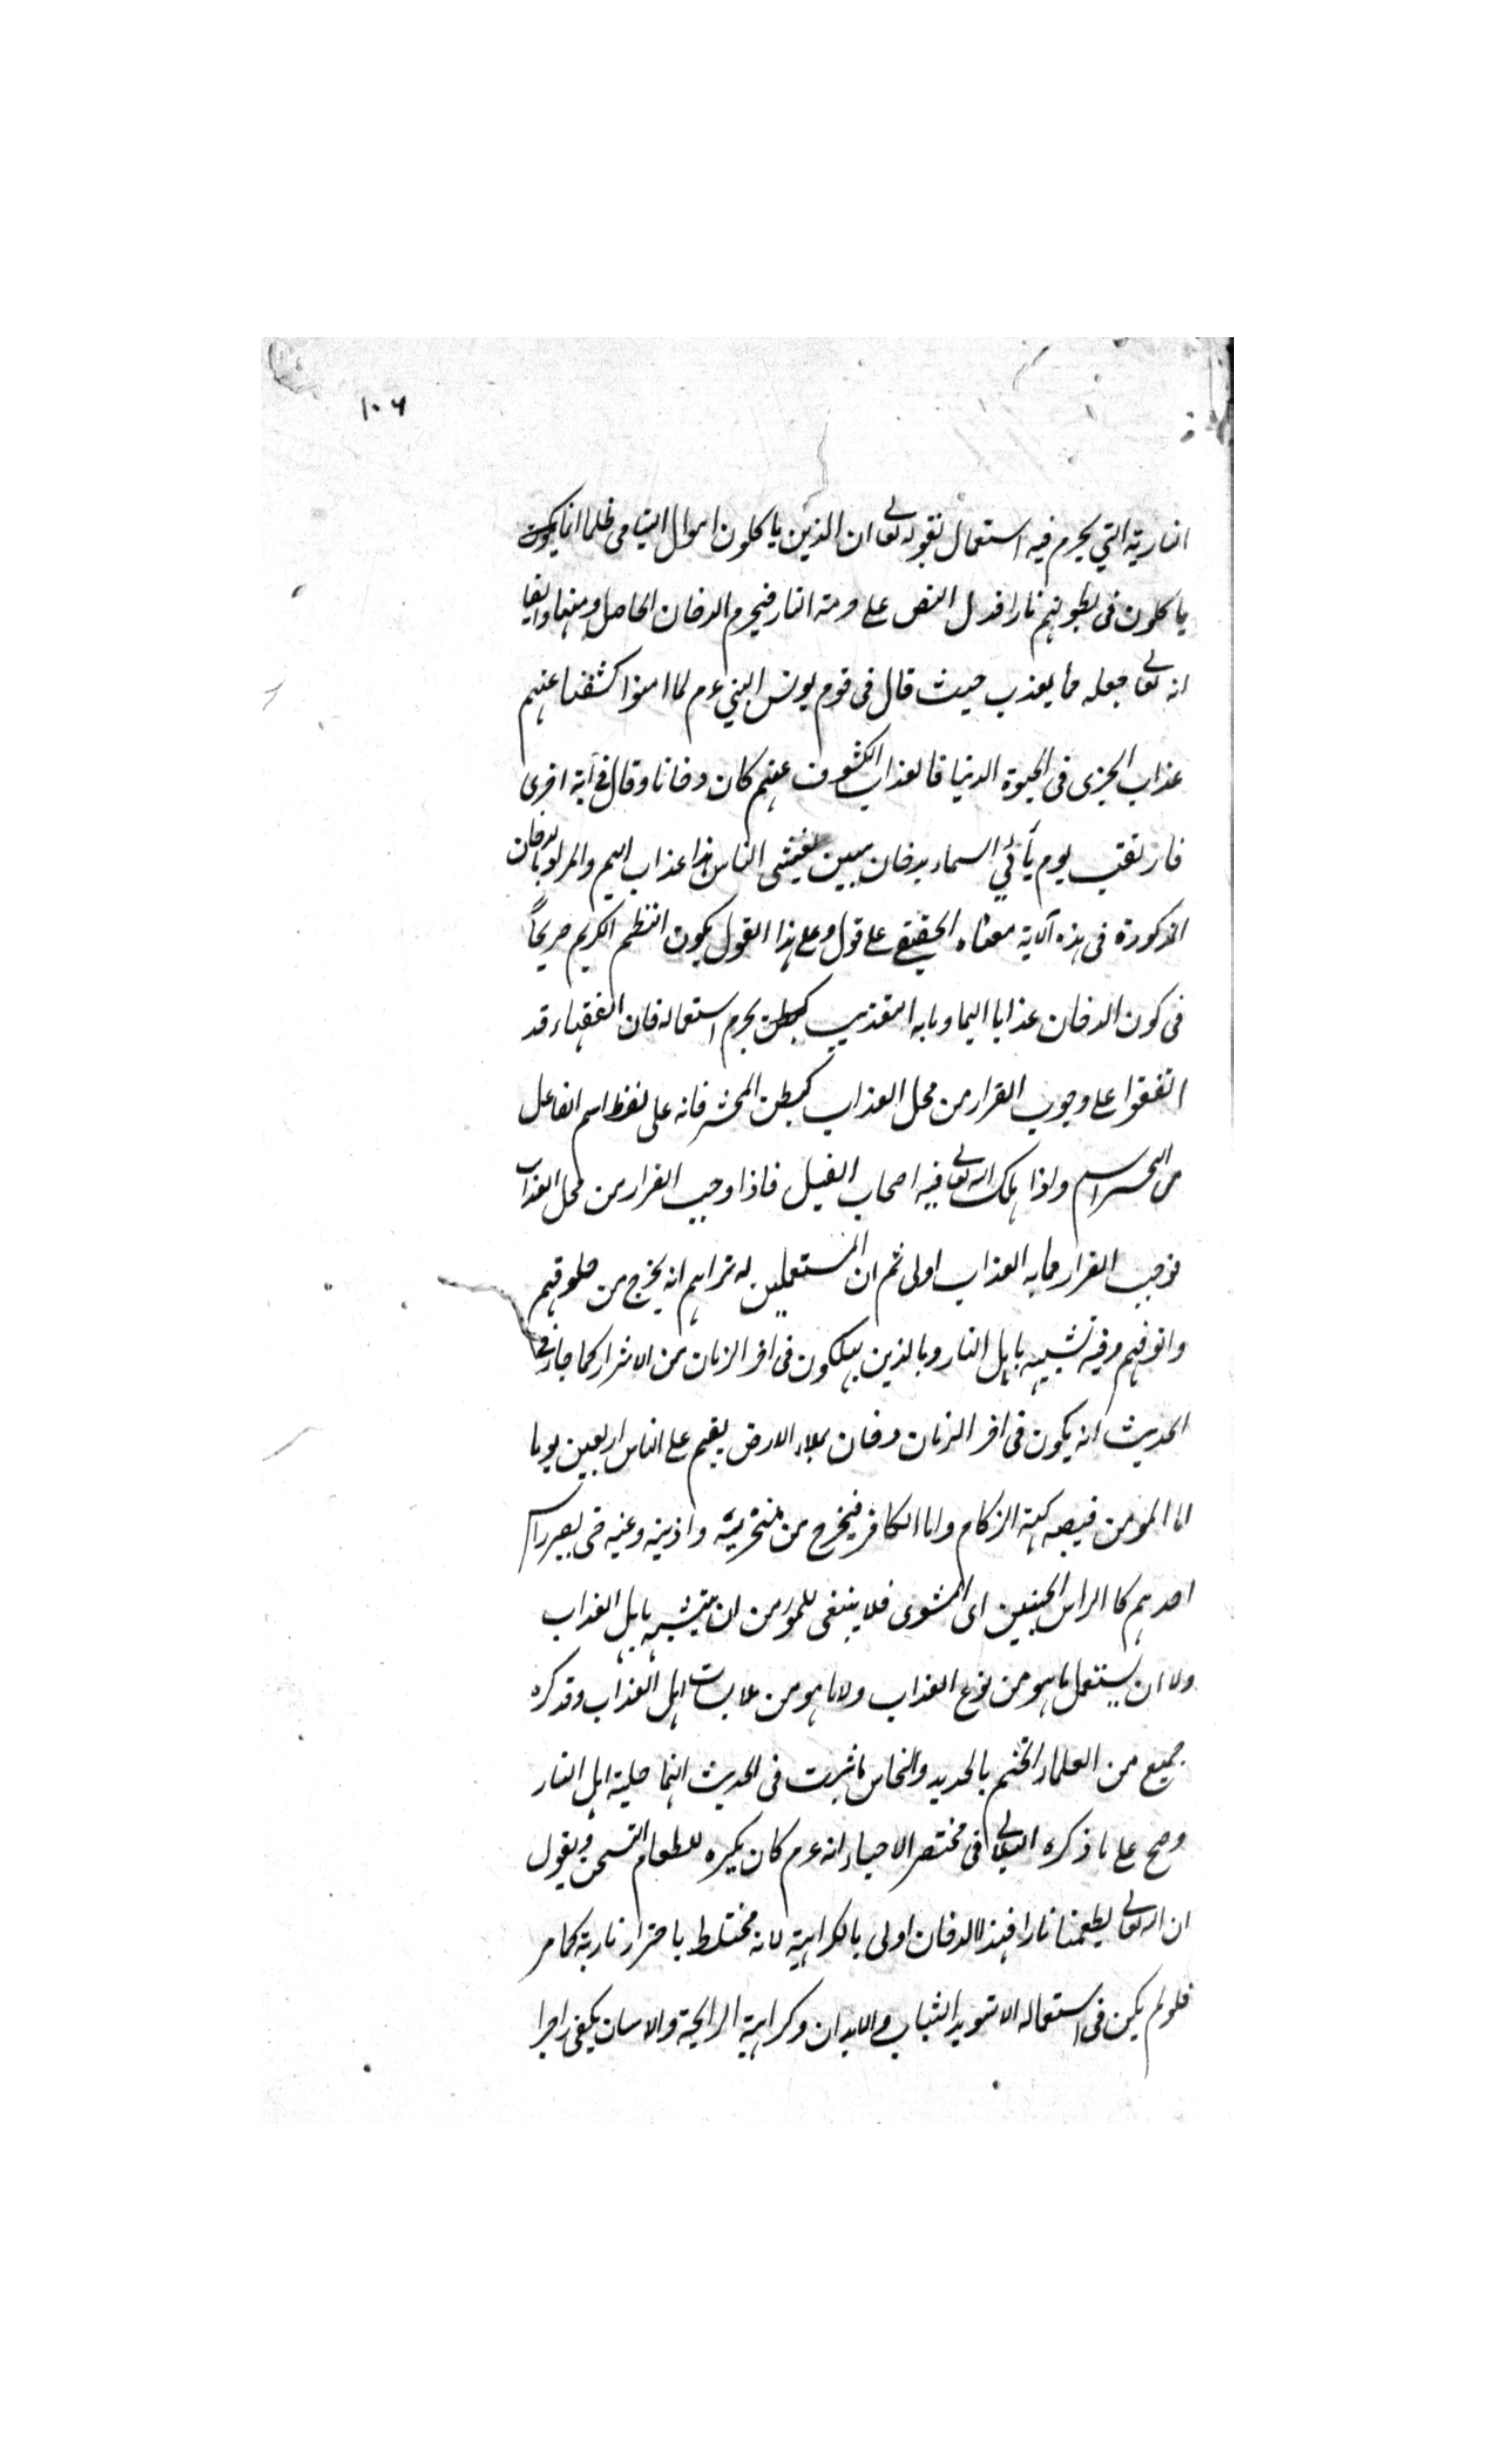 ١٠٦
النارية التي يحرم فيه استعمال بقوله تعالى ان الذين ياكلون اموال اليتامى ظلما انما
ياكلون فى بطونهم نارا فدل النص على حرمة النار فيحرم الدخان الحاصل منها وايضا
انه تعالى جعله مما يعذب حيث قال فى قوم يونس النبي عم لما امنوا كشفنا عنهم
عذاب الخزى فى الحيوة الدنيا فالعذاب المكشوف عنهم كان دخانا وقال فى آية اخرى
فارتقب يوم يأتي السماء بدخان مبين يغشى الناس هذا عذاب اليم والمراد بالدخان
المذكورة فى هذه الآية معناه الحقيقي على قول وعلى هذا القول يكون النظم الكريم صريحاً
فى كون الدخان عذابا اليما وما به التعذيب يحرم استعماله فان الفقهاء قد
اتفقوا على وجوب الفرار من محل العذاب كبطن المحسر فانه على لفظ اسم الفاعل
من التحسر اسم واد اهلك الله تعالى فيه اصحاب الفيل فاذا وجب الفرار من محل العذاب
فوجب الفرار مما به العذاب اولى ثم ان المستعملين له تراهم انه يخرج من حلوقهم
وانوفهم وفيه تشبيه باهل النار وبالذين يهلكون فى اخر الزمان من الاشرار كما جاء فى
الحديث انه يكون فى اخر الزمان دخان يملاء الارض يقيم على الناس اربعين يوما
اما المؤمن فيصيبه كهيئة الزكام واما الكافر فيخرج من منخريه واذنيه وعينيه حتى يصير راس
احدهم كالراس الحنيذ اى المشوى فلا ينبغى للمؤمن ان يتشبه باهل العذاب
ولا ان يستعمل ما هو من نوع العذاب ولا ما هو من ملابسات اهل العذاب وقد كره
جميع من العلماء التختم بالحديد والنحاس لما ثبت فى الحديث انهما حلية اهل النار
وصح على ما ذكره فى مختصر الاحياء انه عم كان يكره للطعام السخن ويقول
ان الله تعالى لم يطعمنا نارا فهذا الدخان اولى بالكراهية لانه مختلط باجزاء نارية كما مر
فلو لم يكن فى استعماله الا تسويد الثياب والابدان وكراهية الرايحة والاسنان يكفى زاجرا